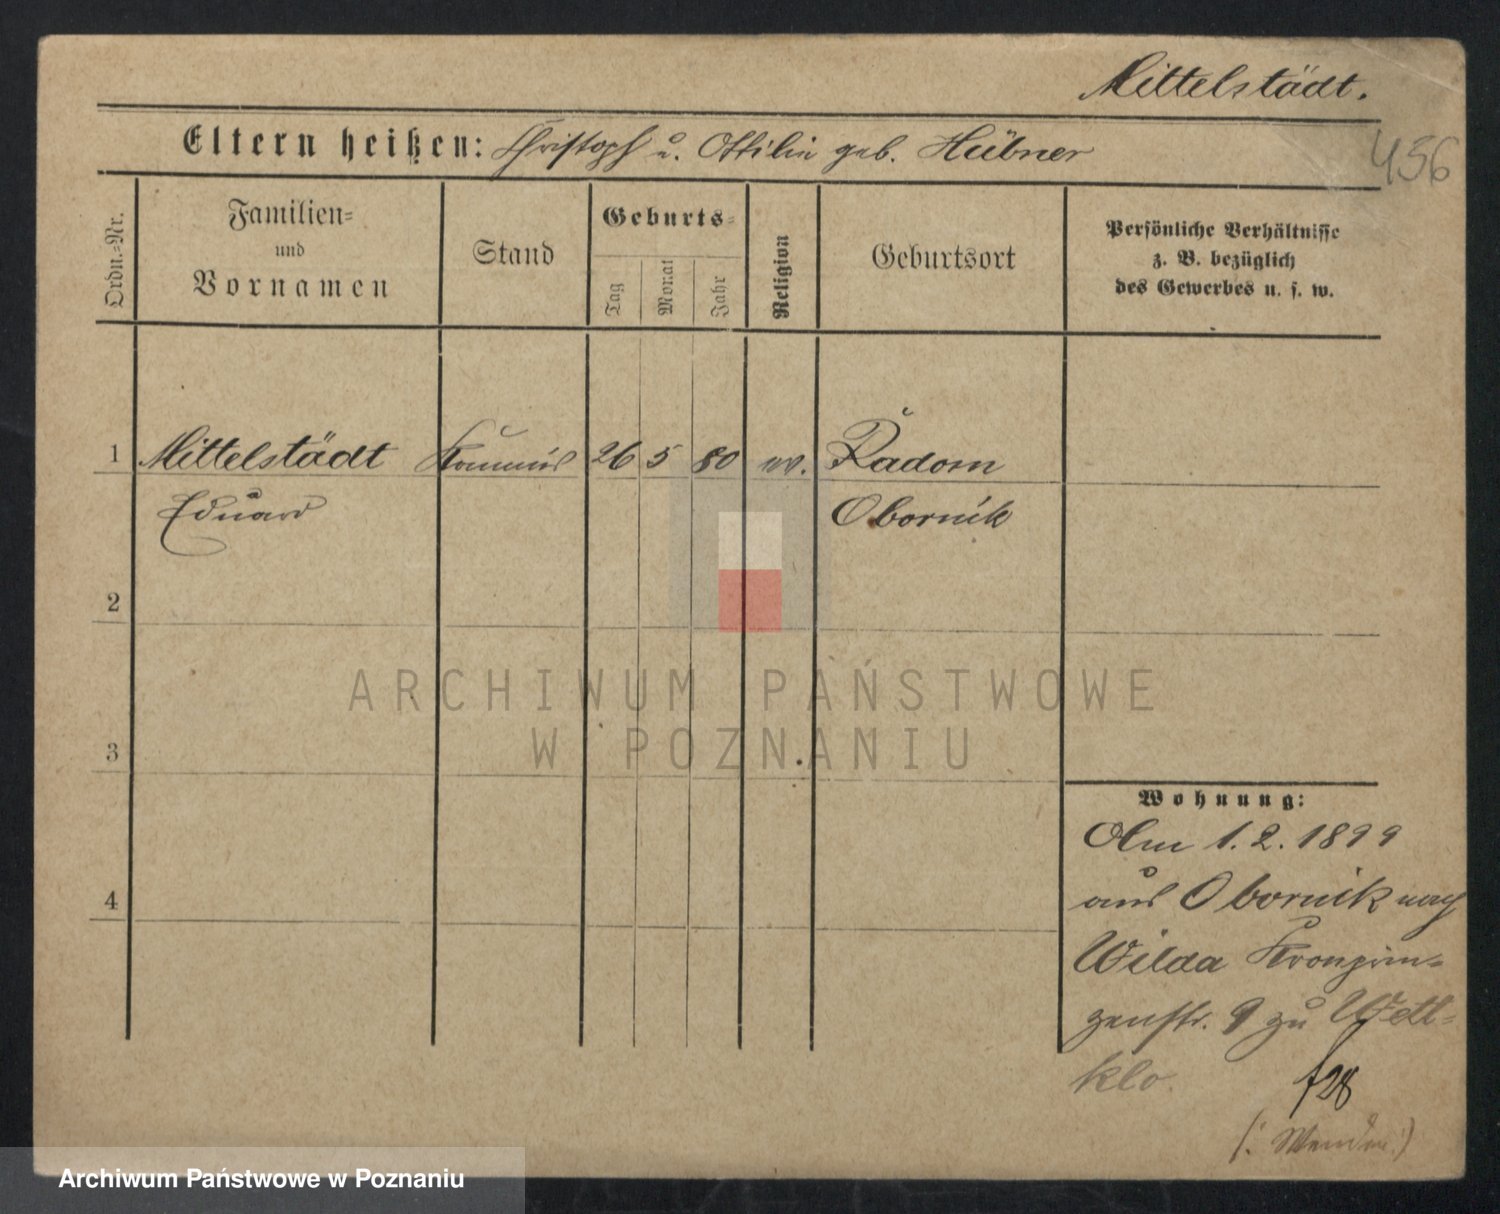 Mittelstädt.
Eltern heißen: Christoph u. Ottilie geb. Hübner
456
Ordn.=Nr.
Familien=
und
Vornamen
Stand
Geburts=
Tag
Monat
Jahr
Religion
Geburtsort
Persönliche Verhältnisse
z. B. bezüglich
des Gewerbes u. s. w.
1 Mittelstädt Kommis 26 5 80 ev. Radom
Eduard Obornik
2
ARCHIWUM PAŃSTWOWE
W POZNANIU
3
Wohnung:
Am 1.2.1899
aus Obornik nach
4
Wilda Kronprin=
zenstr. 9 zu
klo.
f28
(: Wenden :)
Archiwum Państwowe w Poznaniu